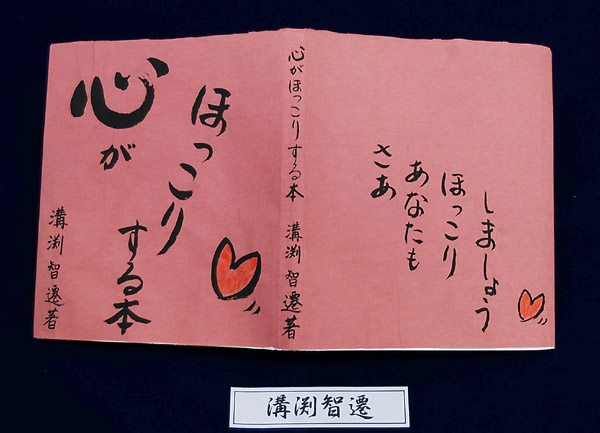 心が
ほっこり
する本
溝渕智遷著
心がほっこりする本 溝渕智遷著
さあ
あなたも
ほっこり
しましょう
溝渕智遷